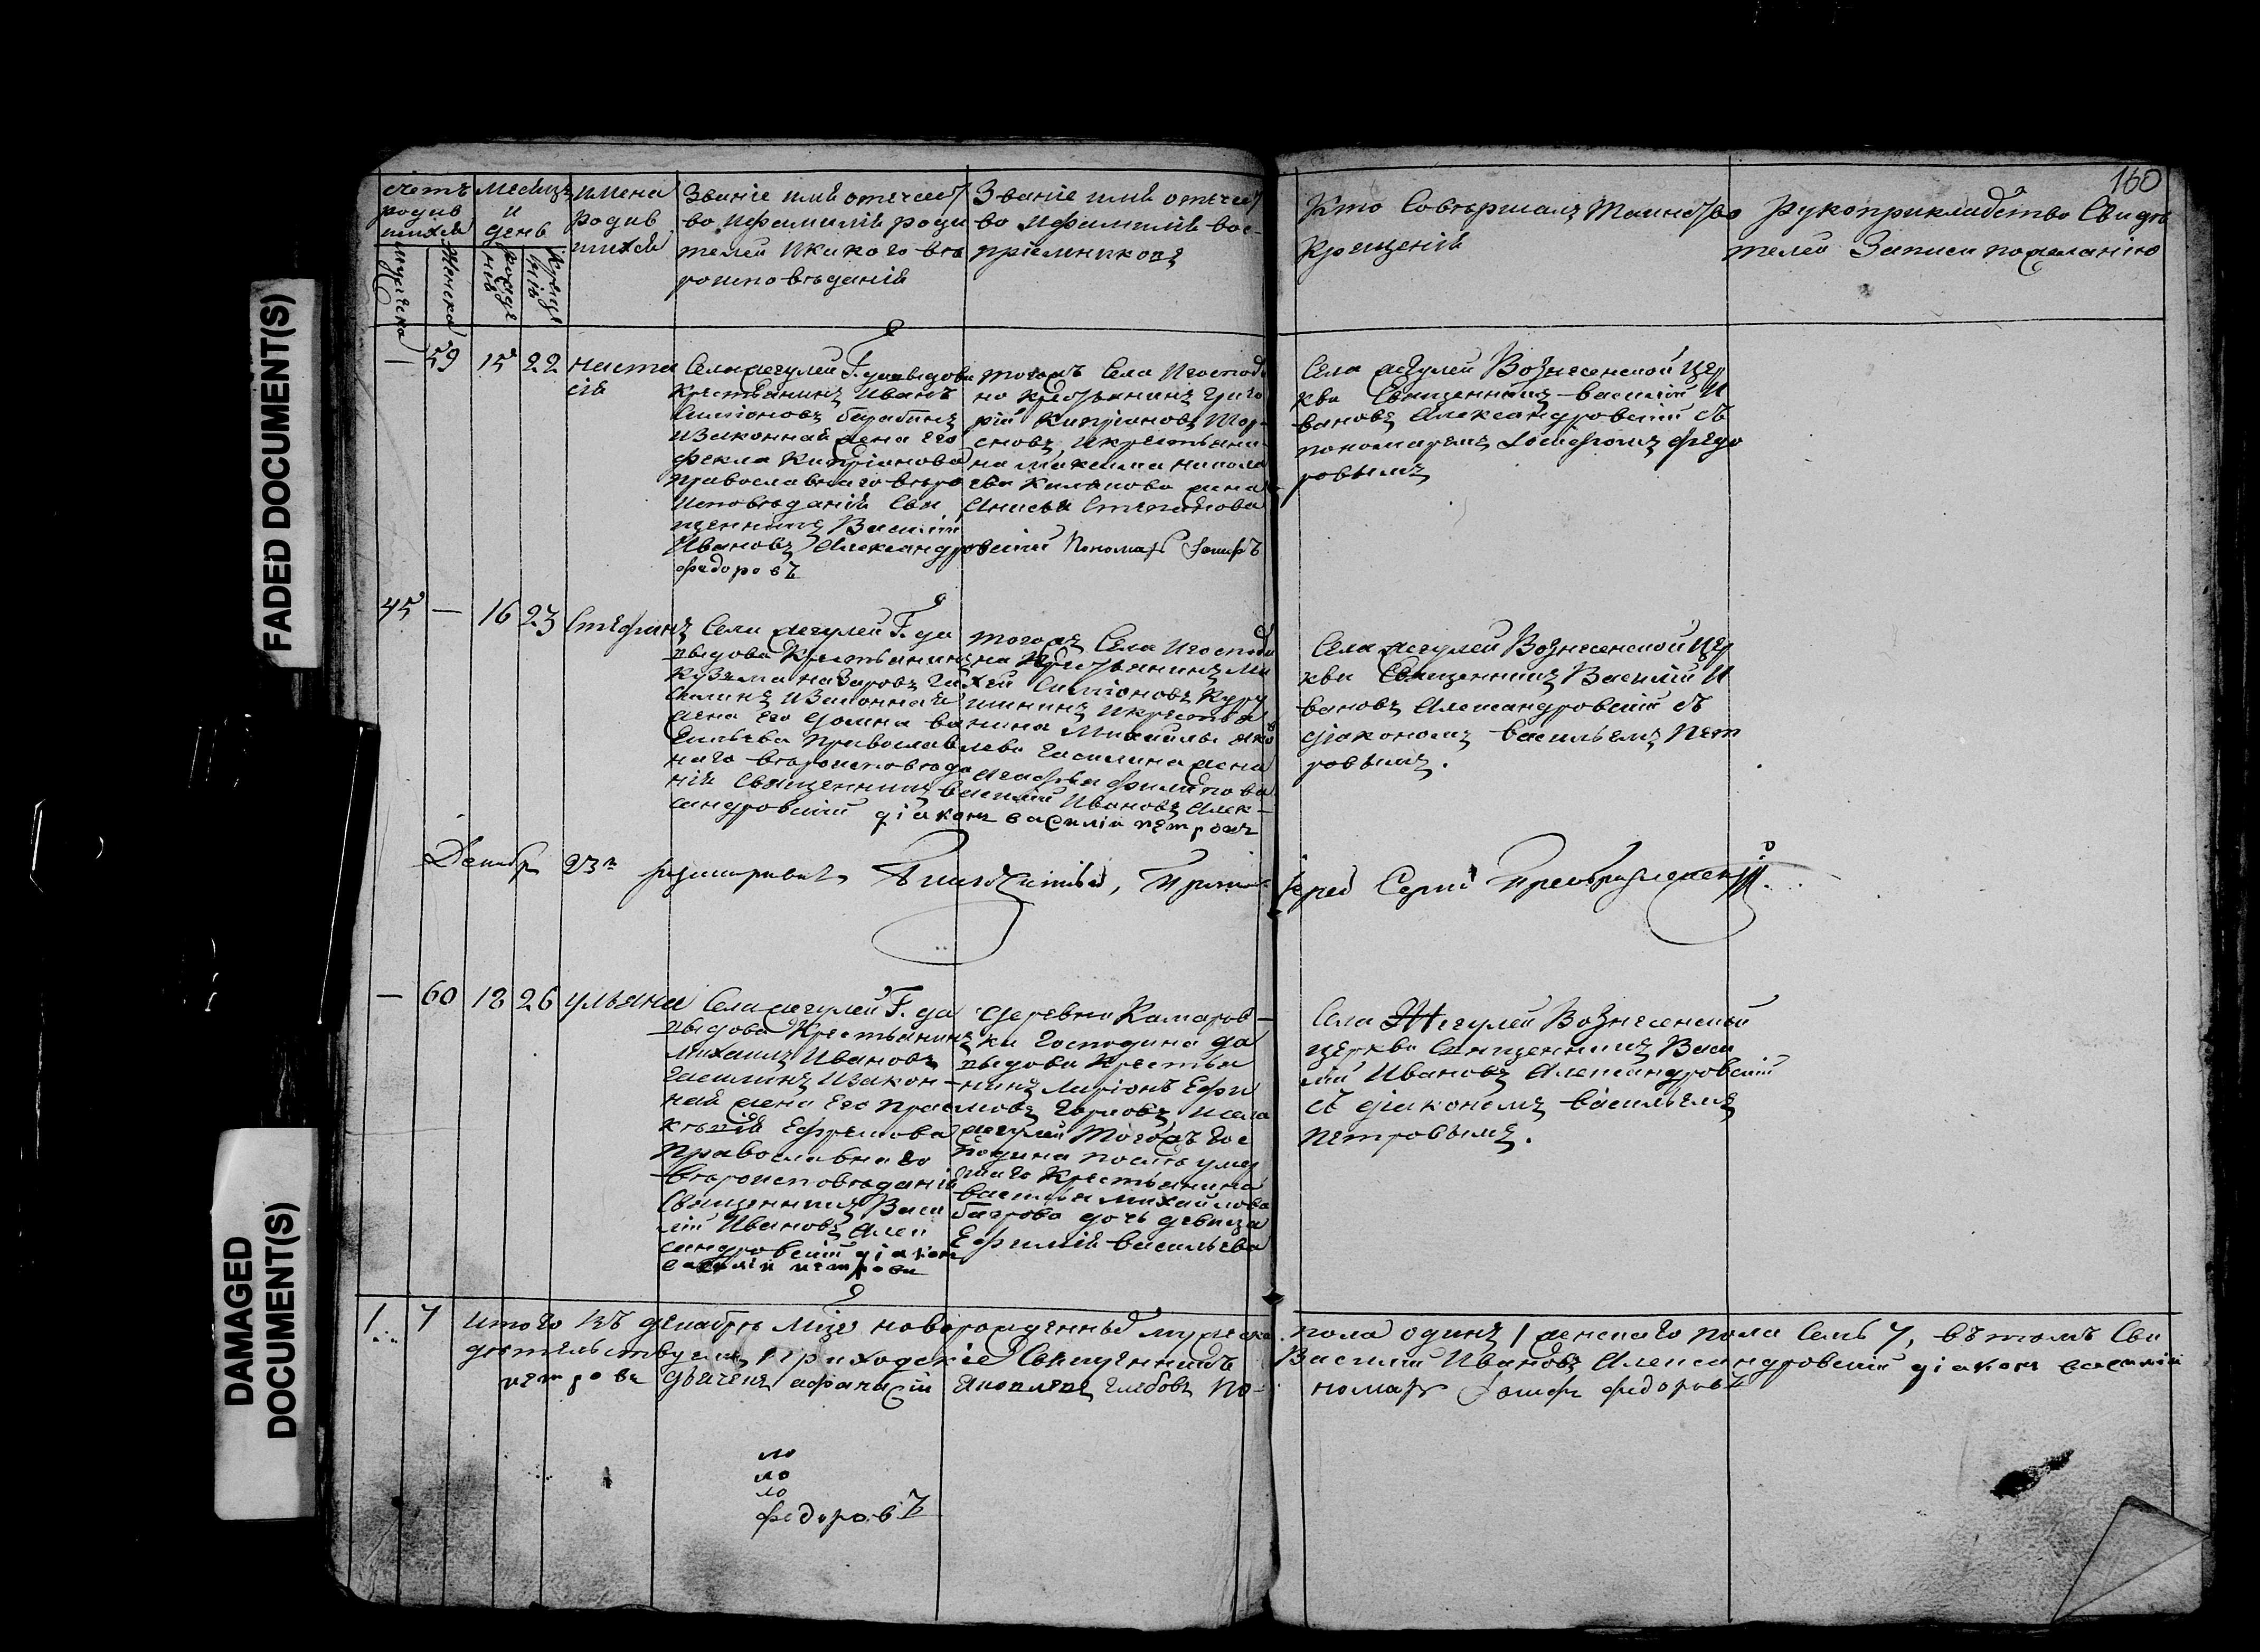 FADED DOCUMENT(S)
DAMAGED
DOCUMENT(S)
160
счетъ
родив
шихся
мужеска
женска
месяцъ
и
день
рожде
нія
креще
нія
имена
родив
шихся
Званіе имя отечест
во ифамилія роди
телей икакого вѣ
роисповѣданія
Званіе имя отечест
во ифамилія вос-
пріемниковъ
Кто совѣршалъ таинство
крещенія
рукоприкладство свидѣ
телей записи пожеланію
— 59 15 22 наста
сія
Села жегулей Г. давыдова
крестьянинъ Иванъ
Симіоновъ барабинъ
изаконная жена его
фекла Кипріянова
православнаго вѣро
исповѣданія Свя
щенникъ Василій
Ивановъ Александровскій Пономарь Іосифъ
федоровъ
тогожъ Села Игосподи
на крестьянинъ Григо
рій Кипріяновъ
сновъ, икрестьяни
на максима никола
ева жена
Анисья Степанова
Села жегулей Вознесенской це
ркви Священникъ василій И
вановъ Александровскій съ
пономаремъ Іосифомъ федо
ровымъ
45 — 16 23 Стефанъ
Села жегулей Г. да
выдова Крестьянинъ
Кузьма назаровъ га
силинъ изаконная
жена его домна ва
сильева православ
наго вѣроисповѣда
нія Священникъ василій Ивановъ Алек-
сандровскій діаконъ василіи петровъ
тогожъ Села Игосподи
на крестьянинъ Ми
хей Симіоновъ Куру
шинъ икрестья
нина Михайлы яко
влева Гасилина жена
Агафья филипова
Села жегулей Вознесенской це
ркви Священникъ Василій И
вановъ Александровскій съ
діакономъ васильемъ Пет
ровымъ.
Декабря 23го Благочинный, Прото-
іерей Сергій Преображенскій.
— 60 18 26 ульяна
Села жегулей Г. да
выдова Крестьянинъ
михаилъ Ивановъ
гасилинъ изакон-
ная жена его прас
ковія Ефремова
православнаго
вѣроисповѣданія
Священникъ Васи
лій Ивановъ Алек
сандровскій діаконъ
василіи петровъ
деревни Камаров-
ки господина да
выдова крестья
нинъ Ларіонъ Ефи
мовъ, исела
жегулей тогожъ гос
подина послѣ умер
шаго крестьянина
василья михайлова
багрова дочь дѣвица
Ефимія васильева
Села Жегулей Вознесенской
церкви священникъ Васи
лій Ивановъ Александровскій
съ діакономъ васильемъ
петровымъ.
1 7 итого въ декабрѣ мцѣ новорожденныхъ мужеска пола одинъ 1 женскаго пола семь 7, въ томъ сви
дѣтельствуемъ приходскіе священникъ Василій Ивановъ Александровскій діаконъ василіи
петровъ дьячекъ афанасій глебовъ по- номарь Іосифъ федоровъ
ло
ло
ло
федоровъ